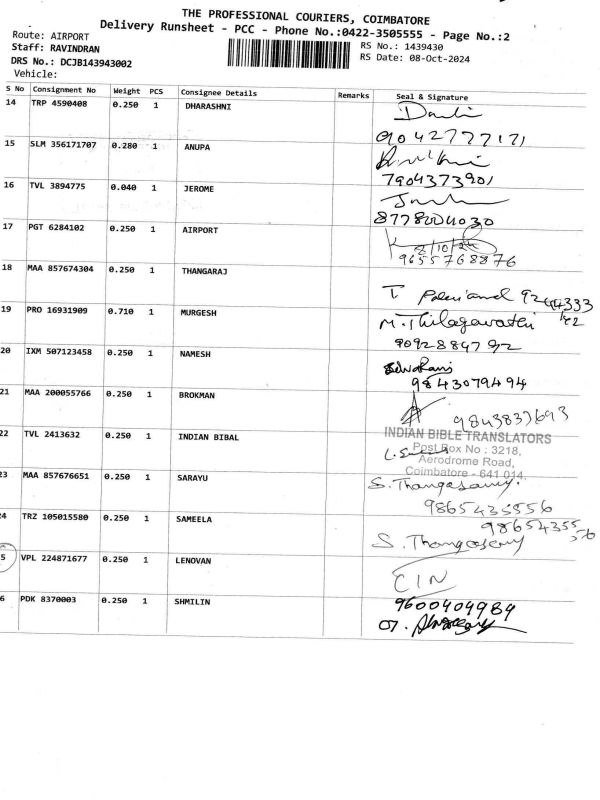 THE PROFESSIONAL COURIERS, COIMBATORE
Delivery Runsheet - PCC - Phone No.:0422-3505555 - Page No.:2
Route: AIRPORT
Staff: RAVINDRAN
DRS No.: DCJB143943002
Vehicle:
RS No.: 1439430
RS Date: 08-Oct-2024
S No Consignment No Weight PCS Consignee Details Remarks Seal & Signature
14 TRP 4590408 0.250 1 DHARASHNI
9042777171
15 SLM 356171707 0.280 1 ANUPA
7904373901
16 TVL 3894775 0.040 1 JEROME
8778004030
17 PGT 6284102 0.250 1 AIRPORT
8/10/24
9655768876
18 MAA 857674304 0.250 1 THANGARAJ
T.
19 PRO 16931909 0.710 1 MURGESH
M. Thilagavathi
20 IXM 507123458 0.250 1 NAMESH
9843079494
21 MAA 200055766 0.250 1 BROKMAN
9843837693
22 TVL 2413632 0.250 1 INDIAN BIBAL
INDIAN BIBLE TRANSLATORS
Post Box No : 3218,
Aerodrome Road,
Coimbatore - 641 014.
23 MAA 857676651 0.250 1 SARAYU
S. Thangasamy.
24 TRZ 105015580 0.250 1 SAMEELA
S. Thangasamy
5 VPL 224871677 0.250 1 LENOVAN
CIN
6 PDK 8370003 0.250 1 SHMILIN
9600409984